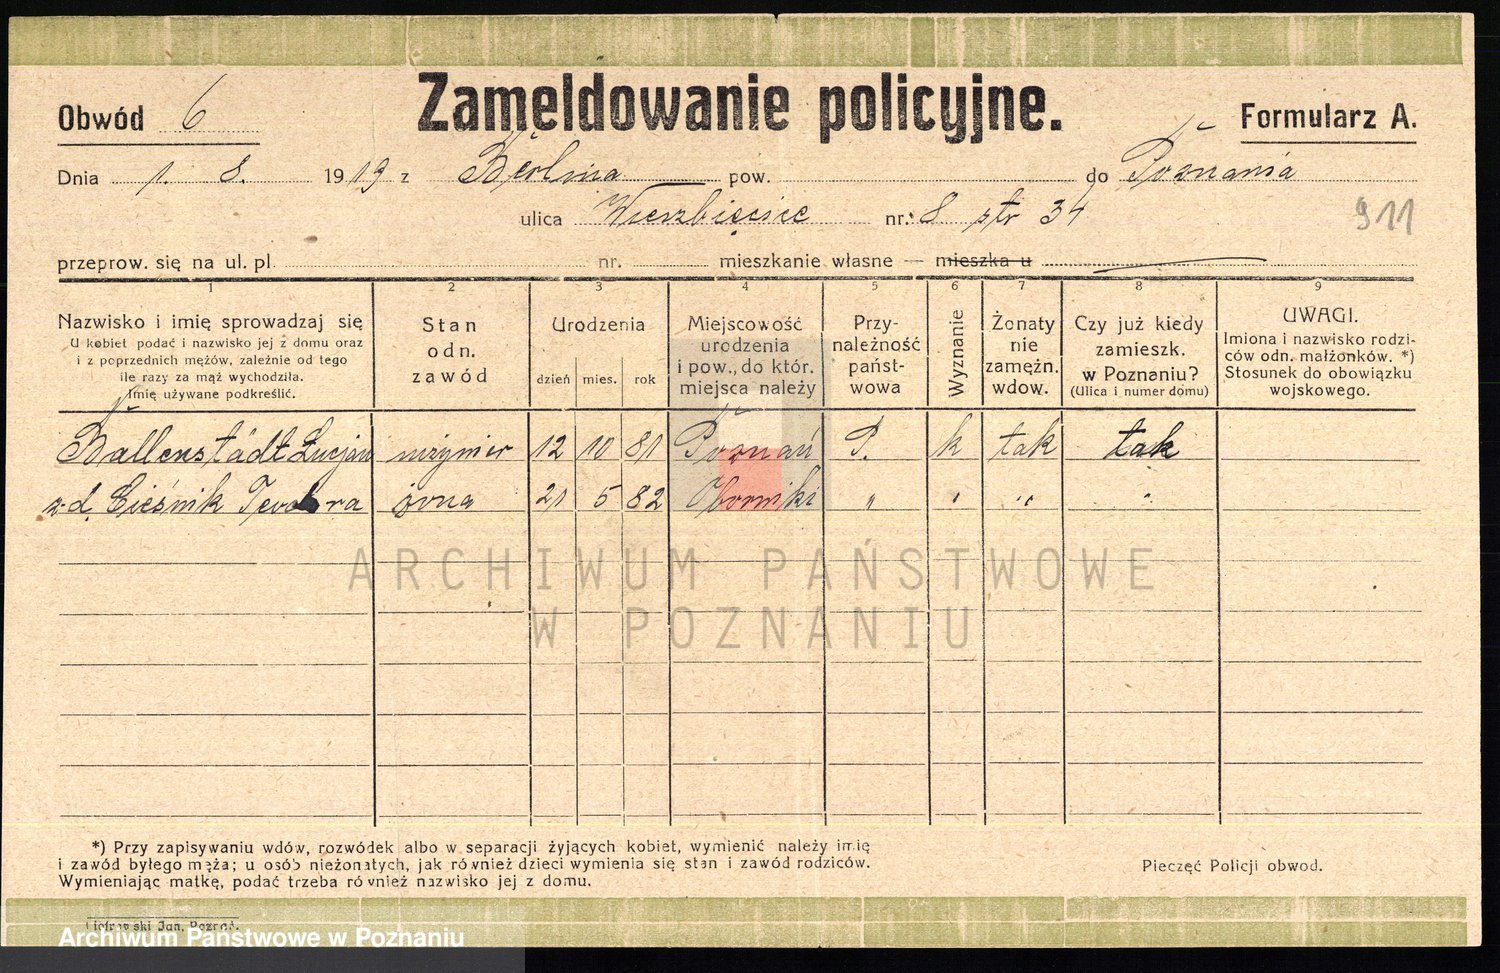 Obwód 6
Zameldowanie policyjne.
Formularz A.
Dnia 1. 8. 1919 z Berlina pow. do Poznania
ulica Wierzbięcice nr. 8 str 34
911
przeprow. się na ul. pl. nr. mieszkanie własne — mieszka u
1 2 3 4 5 6 7 8 9
Nazwisko i imię sprowadzaj się
U kobiet podać i nazwisko jej z domu oraz
i z poprzednich mężów, zależnie od tego
ile razy za mąż wychodziła.
Imię używane podkreślić.
Stan
odn.
zawód
Urodzenia
dzień mies. rok
Miejscowość
urodzenia
i pow., do któr.
miejsca należy
Przy-
należność
pańśt-
wowa
Wyznanie
Żonaty
nie
zamężn.
wdow.
Czy już kiedy
zamieszk.
w Poznaniu?
(Ulica i numer domu)
UWAGI.
Imiona i nazwisko rodzi-
ców odn. małżonków. *)
Stosunek do obowiązku
wojskowego.
Ballenstädt Lucjan inżynier 12 10 81 Poznań P. k tak tak
z d. Cieśnik Teodora żona 21 5 82 Oborniki " " " "
ARCHIWUM PAŃSTWOWE
W POZNANIU
*) Przy zapisywaniu wdów, rozwódek albo w separacji żyjących kobiet, wymienić należy imię
i zawód byłego męża; u osób nieżonatych, jak również dzieci wymienia się stan i zawód rodziców.
Wymieniając matkę, podać trzeba również nazwisko jej z domu.
Pieczęć Policji obwod.
Piotrowski Jan, Poznań.
Archiwum Państwowe w Poznaniu